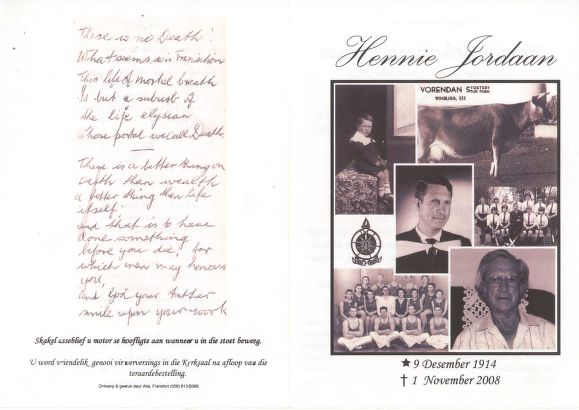 There is no Death!
What seems so is Transition
This life of mortal breath
Is but a suburb of
the life elysian
whose portal we call Death.
There is a better thing on
earth than wealth
a better thing than life
itself!
and that is to have
done something
before you die, for
which men may honour
you,
and God your Father
smile upon your work
Skakel asseblief u motor se hoofligte aan wanneer u in die stoet beweeg.
U word vriendelik genooi vir verversings in die Kerksaal na afloop van die
teraardebestelling.
Ontwerp & gedruk deur Arts, Frankfort (058) 813-
Hennie Jordaan
VORENDAN STOETERY
STUD FARM
WINBURG,
9 Desember 1914
1 November 2008